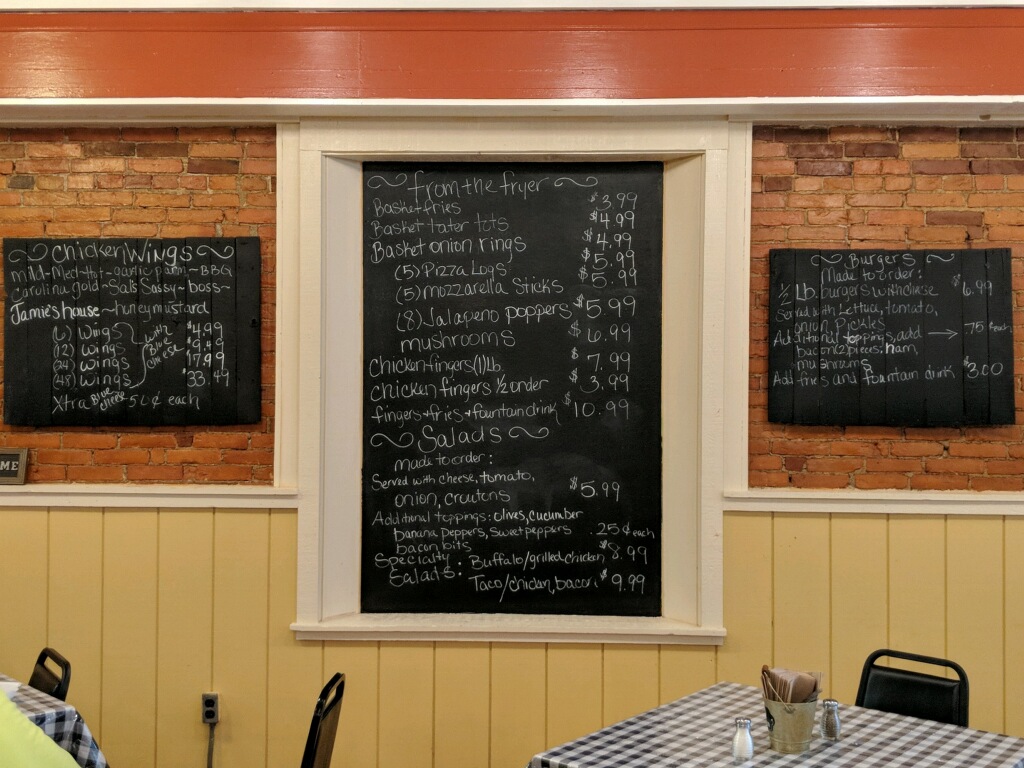 Chicken Wings
mild-Med-Hot-garlic parm-BBQ
Carolina gold-Sals Sassy-boss-
Jamie's house-honey mustard
(6) Wings $4.99
(12) Wings $9.49
(24) Wings $17.99
(48) Wings $33.49
with Blue cheese
Xtra Blue cheese - 50¢ each
ME
from the fryer
Basket fries $3.99
Basket tater tots $4.99
Basket onion rings $4.99
(5) Pizza Logs $5.99
(5) mozzarella Sticks $5.99
(8) Jalapeno poppers $5.99
mushrooms $6.99
Chicken fingers (1) lb. $7.99
Chicken fingers 1/2 order $3.99
fingers + fries + fountain drink $10.99
Salads
made to order:
Served with cheese, tomato,
onion, croutons $5.99
Additional toppings: olives, cucumber
banana peppers, sweet peppers .25¢ each
bacon bits
Specialty Salads: Buffalo/grilled chicken $8.99
Taco/chicken, bacon, $9.99
Burgers
Made to order:
1/2 Lb. burgers with cheese $6.99
Served with Lettuce, tomato,
onion, Pickles
Additional toppings, add → .75 each
bacon (2) pieces, ham,
mushrooms
Add fries and fountain drink $3.00